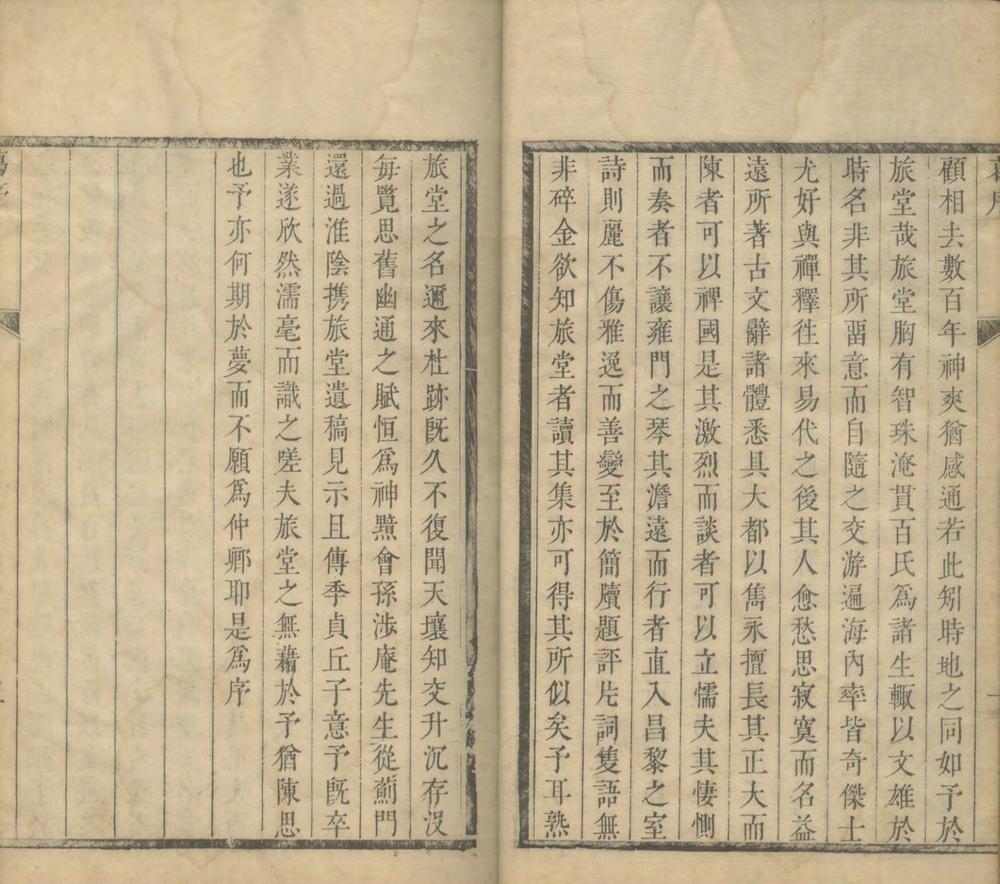 顧相去數百年神爽猶感通若此矧時地之同如予於
旅堂哉旅堂胸有智珠淹貫百氏爲諸生輙以文雄於
時名非其所畱意而自隨之交游遍海內率皆奇傑士
尤好與禪釋徃來易代之後其人愈愁思寂寞而名益
遠所著古文辭諸體悉具大都以雋永擅長其正大而
陳者可以裨國是其激烈而談者可以立懦夫其悽惻
而奏者不讓雍門之琴其澹遠而行者直入昌黎之室
詩則麗不傷雅逸而善變至於簡牘題評片詞隻語無
非碎金欲知旅堂者讀其集亦可得其所似矣予耳熟
旅堂之名邇來杜跡旣久不復聞天壤知交升沉存沒
每覽思舊幽通之賦恒爲神黯會孫涉庵先生從薊門
還過淮陰携旅堂遺稿見示且傳季貞丘子意予旣卒
業遂欣然濡毫而識之嗟夫旅堂之無藉於予猶陳思
也予亦何期於夢而不願爲仲卿耶是爲序